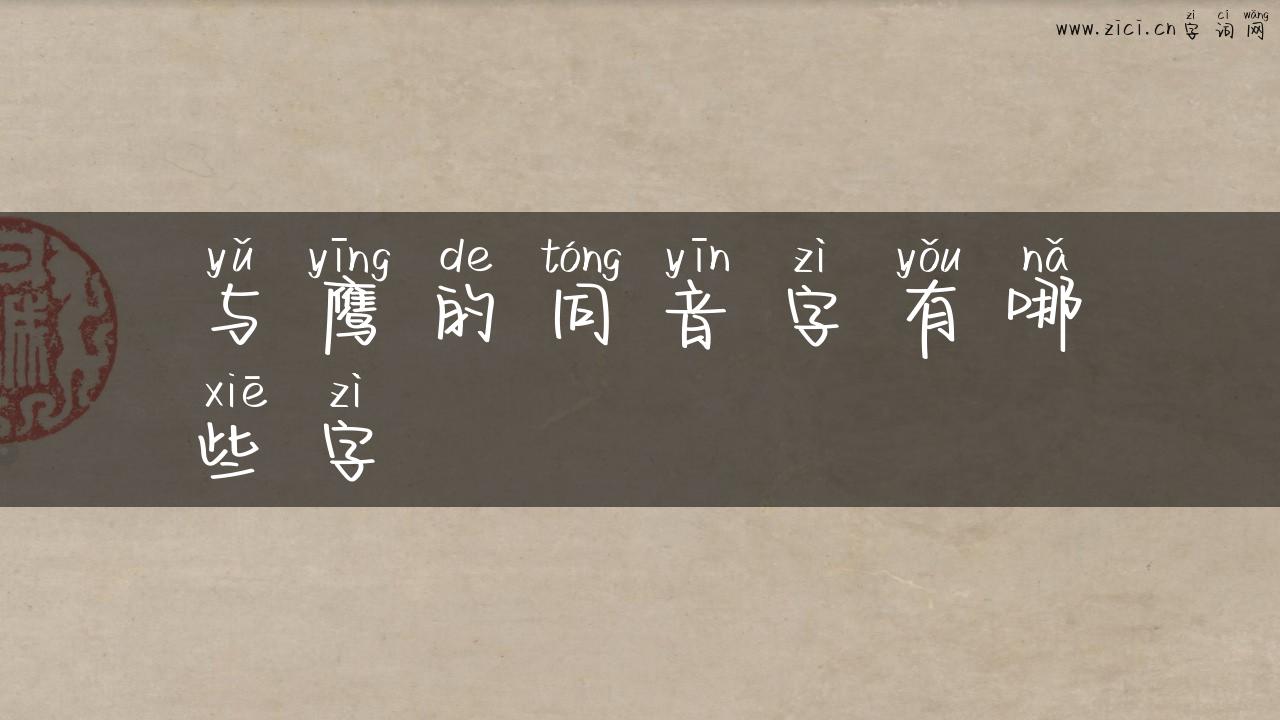 zì cí wǎng
www.zici.cn 字词网
yǔ yīng de tóng yīn zì yǒu nǎ
与鹰的同音字有哪
xiē zì
些字